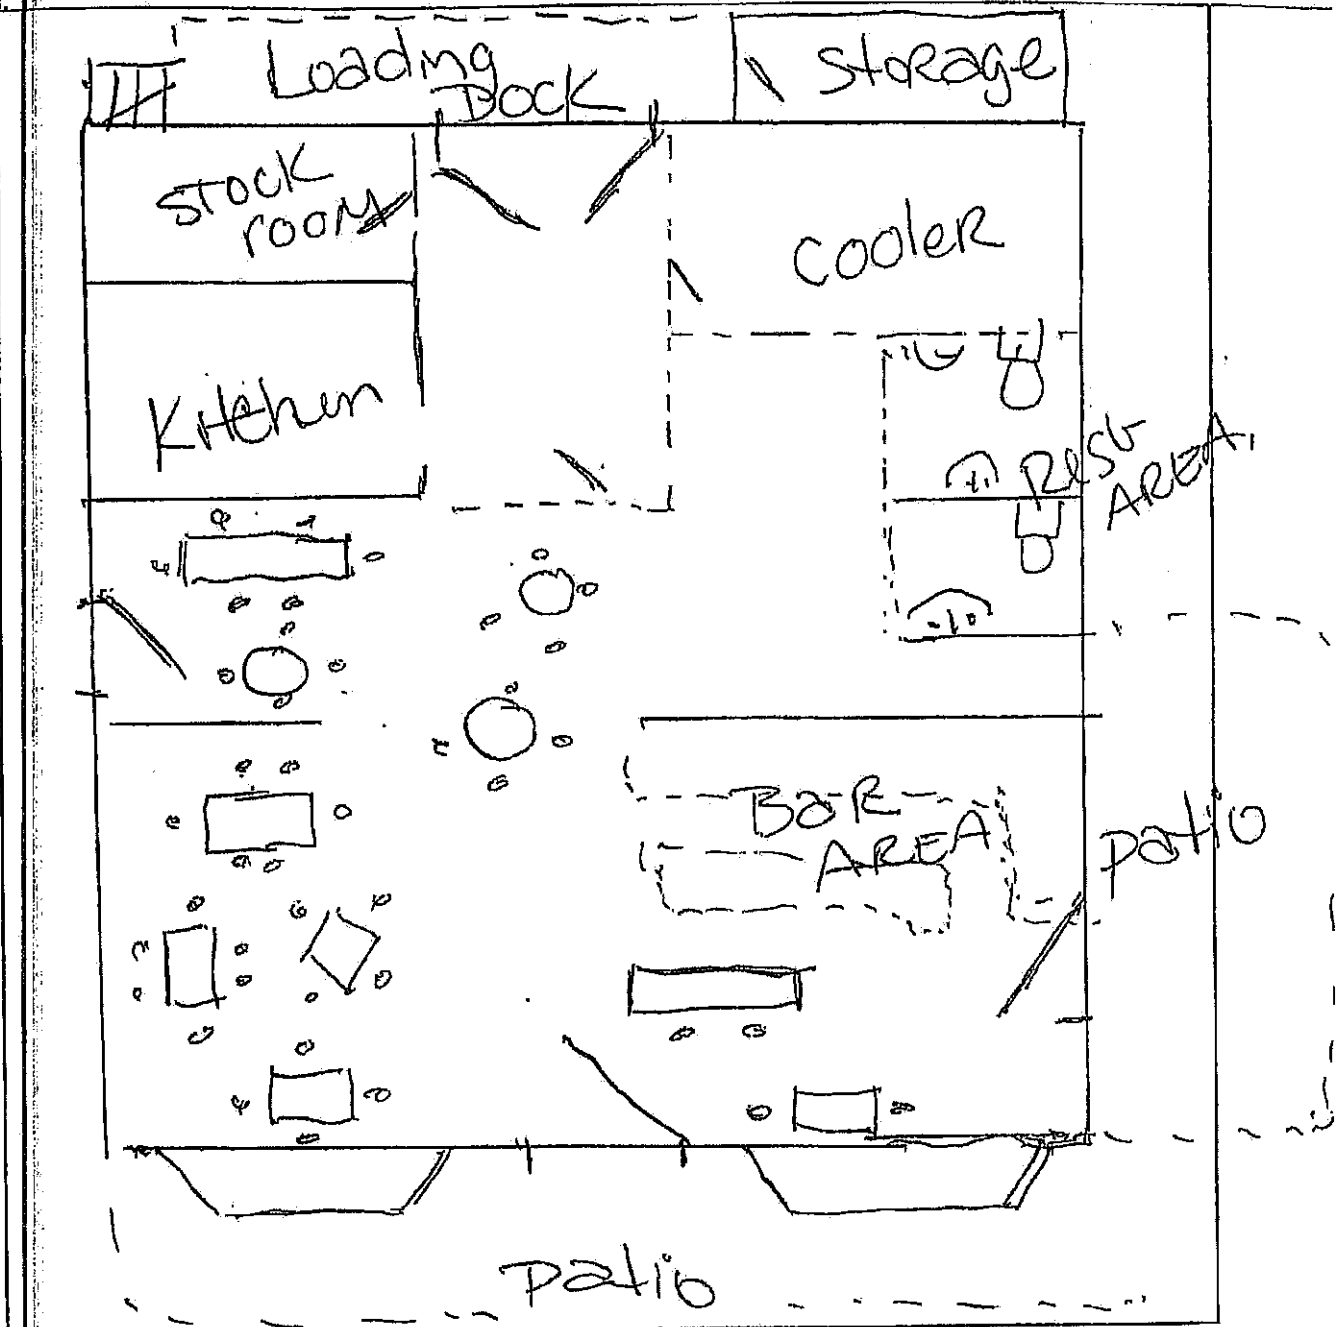 Loading
Dock
Storage
Stock
room
Cooler
Kitchen
Rest
AREA
Bar
AREA
patio
patio